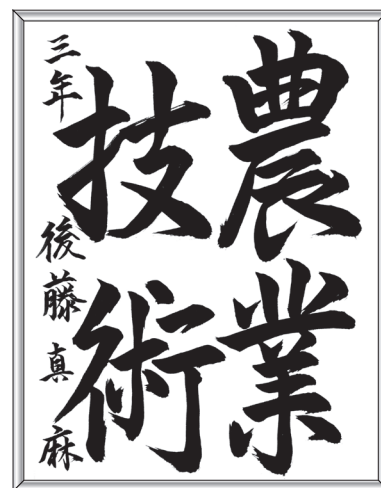 農業
技術
三年 後藤真麻